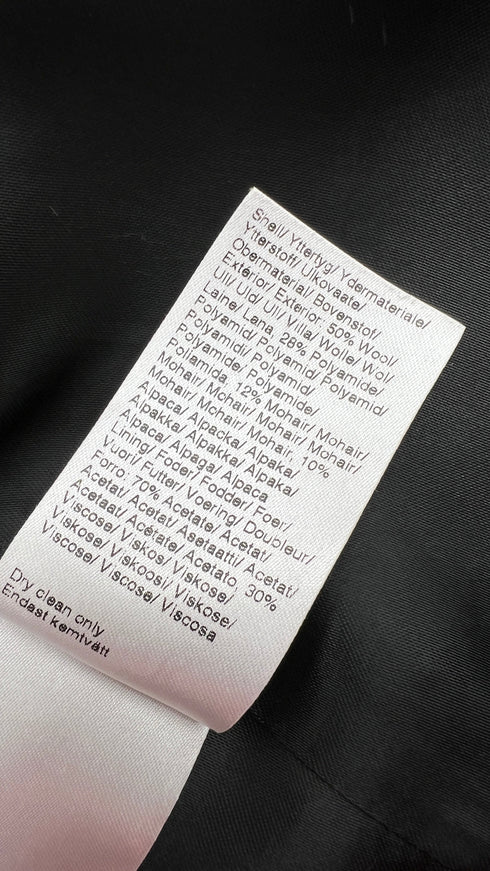 Shell/ Yttertyg/ Ydermateriale/
Ytterstoff/ Ulkovaate/
Obermaterial/ Bovenstof/
Extérior/ Exterior, 50% Wool/
Ull/ Uld/ Ull/ Villa/ Wolle/ Wol/
Laine/ Lana, 28% Polyamide/
Polyamid/ Polyamid/ Polyamid/
Polyamidi/ Polyamid/
Polyamide/ Polyamide/
Poliamida, 12% Mohair/ Mohair/
Mohair/ Mohair/ Mohair/ Mohair/
Mohair/ Mohair/ Mohair, 10%
Alpaca/ Alpacka/ Alpaka/
Alpakka/ Alpakka/ Alpaka/
Alpaca/ Alpaga/ Alpaca
Lining/ Foder/ Fodder/ Foer/
Vuori/ Futter/ Voering/ Doubleur/
Forro: 70% Acetate/ Acetat/
Acetat/ Acetat/ Asetaatti/ Acetat/
Acetaat/ Acétate/ Acetato, 30%
Viscose/ Viskos/ Viskose/
Viskose/ Viskoosi/ Viskose/
Viscose/ Viscose/ Viscosa
Dry clean only
Endast kemtvätt